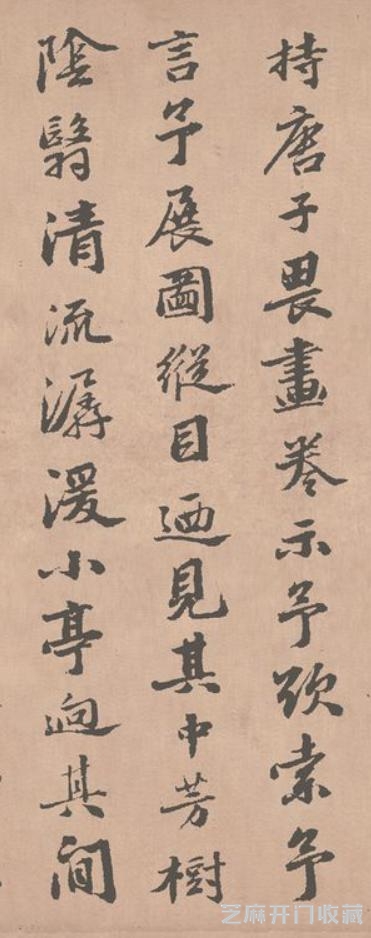 持唐子畏畫卷示予欲索予
言予展圖縱目迺見其中芳樹
陰翳清流潺湲小亭逈其間
芝麻开门收藏